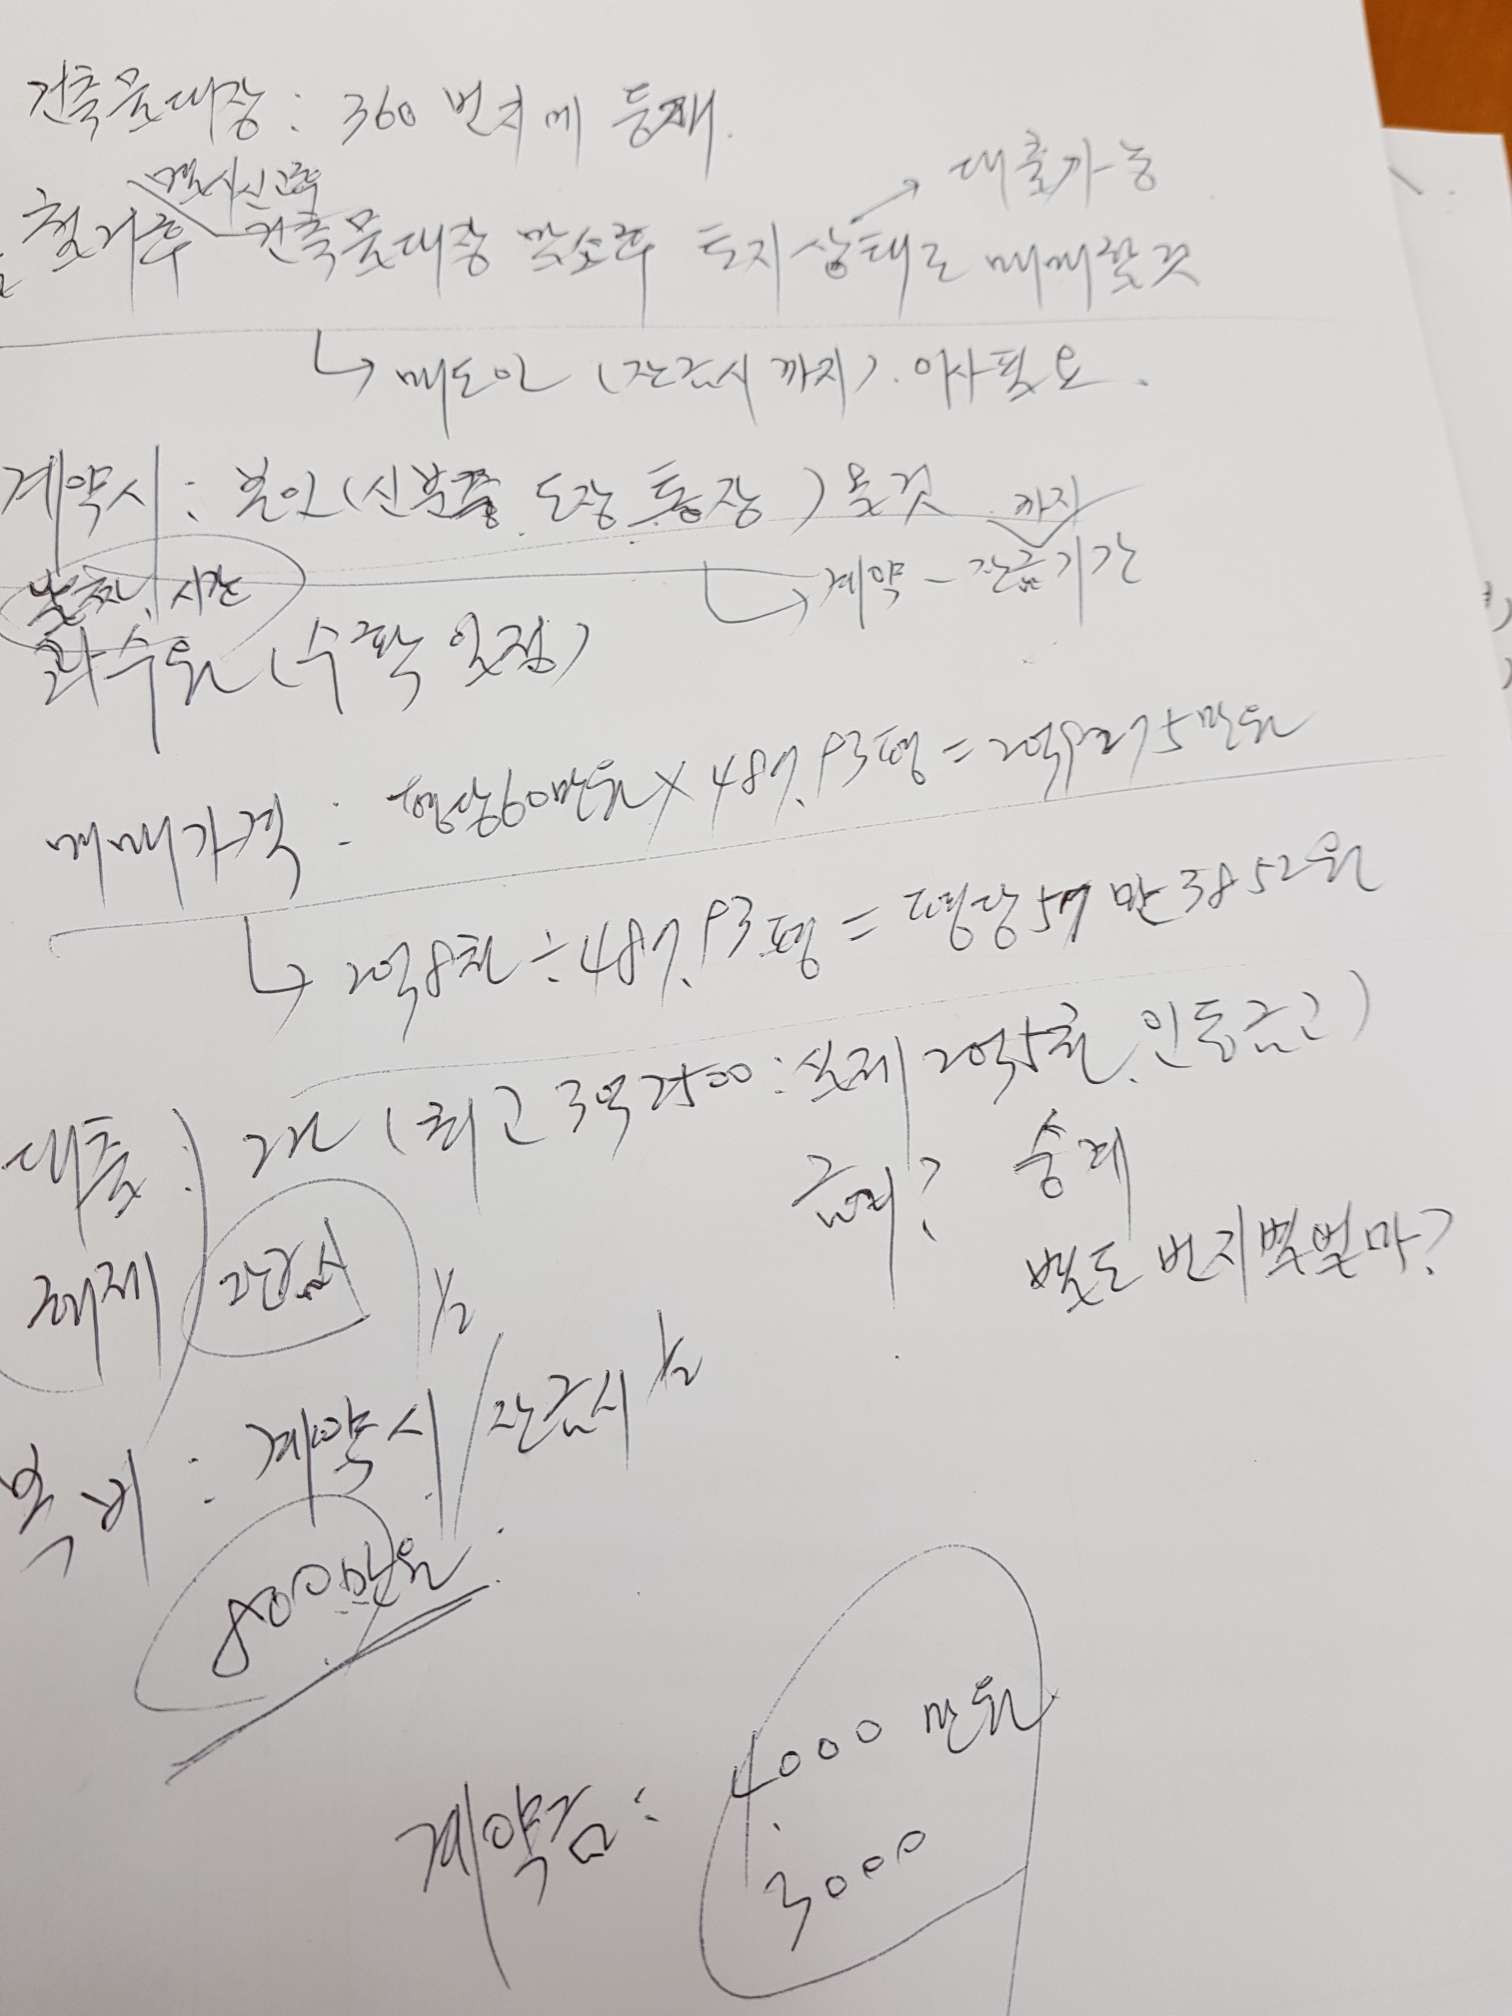 건축물대장 : 360 번지에 등재.
멸실신고후
→ 대출가능
철거후 건축물대장 말소후 토지상태로 매매할것
↳ 매도인 (잔금시 까지). 이사필요.
계약시 : 본인(신분증. 도장. 통장) 올것
까지
↳ 계약 - 잔금기간
날짜. 시간
과수원 (수확 일정)
매매가격 : 평당60만원 × 487.93평 = 2억9275만원
↳ 2억8천 ÷ 487.93평 = 평당57만3852원
대출 : 2건 (최고 3억2500 : 실제 2억5천. 인동금고)
해제 잔금시
금액? 승계
별도 번지별얼마?
복비 : 계약시 1/2 / 잔금시 1/2
800만원
계약금 : 4000 만원
3000